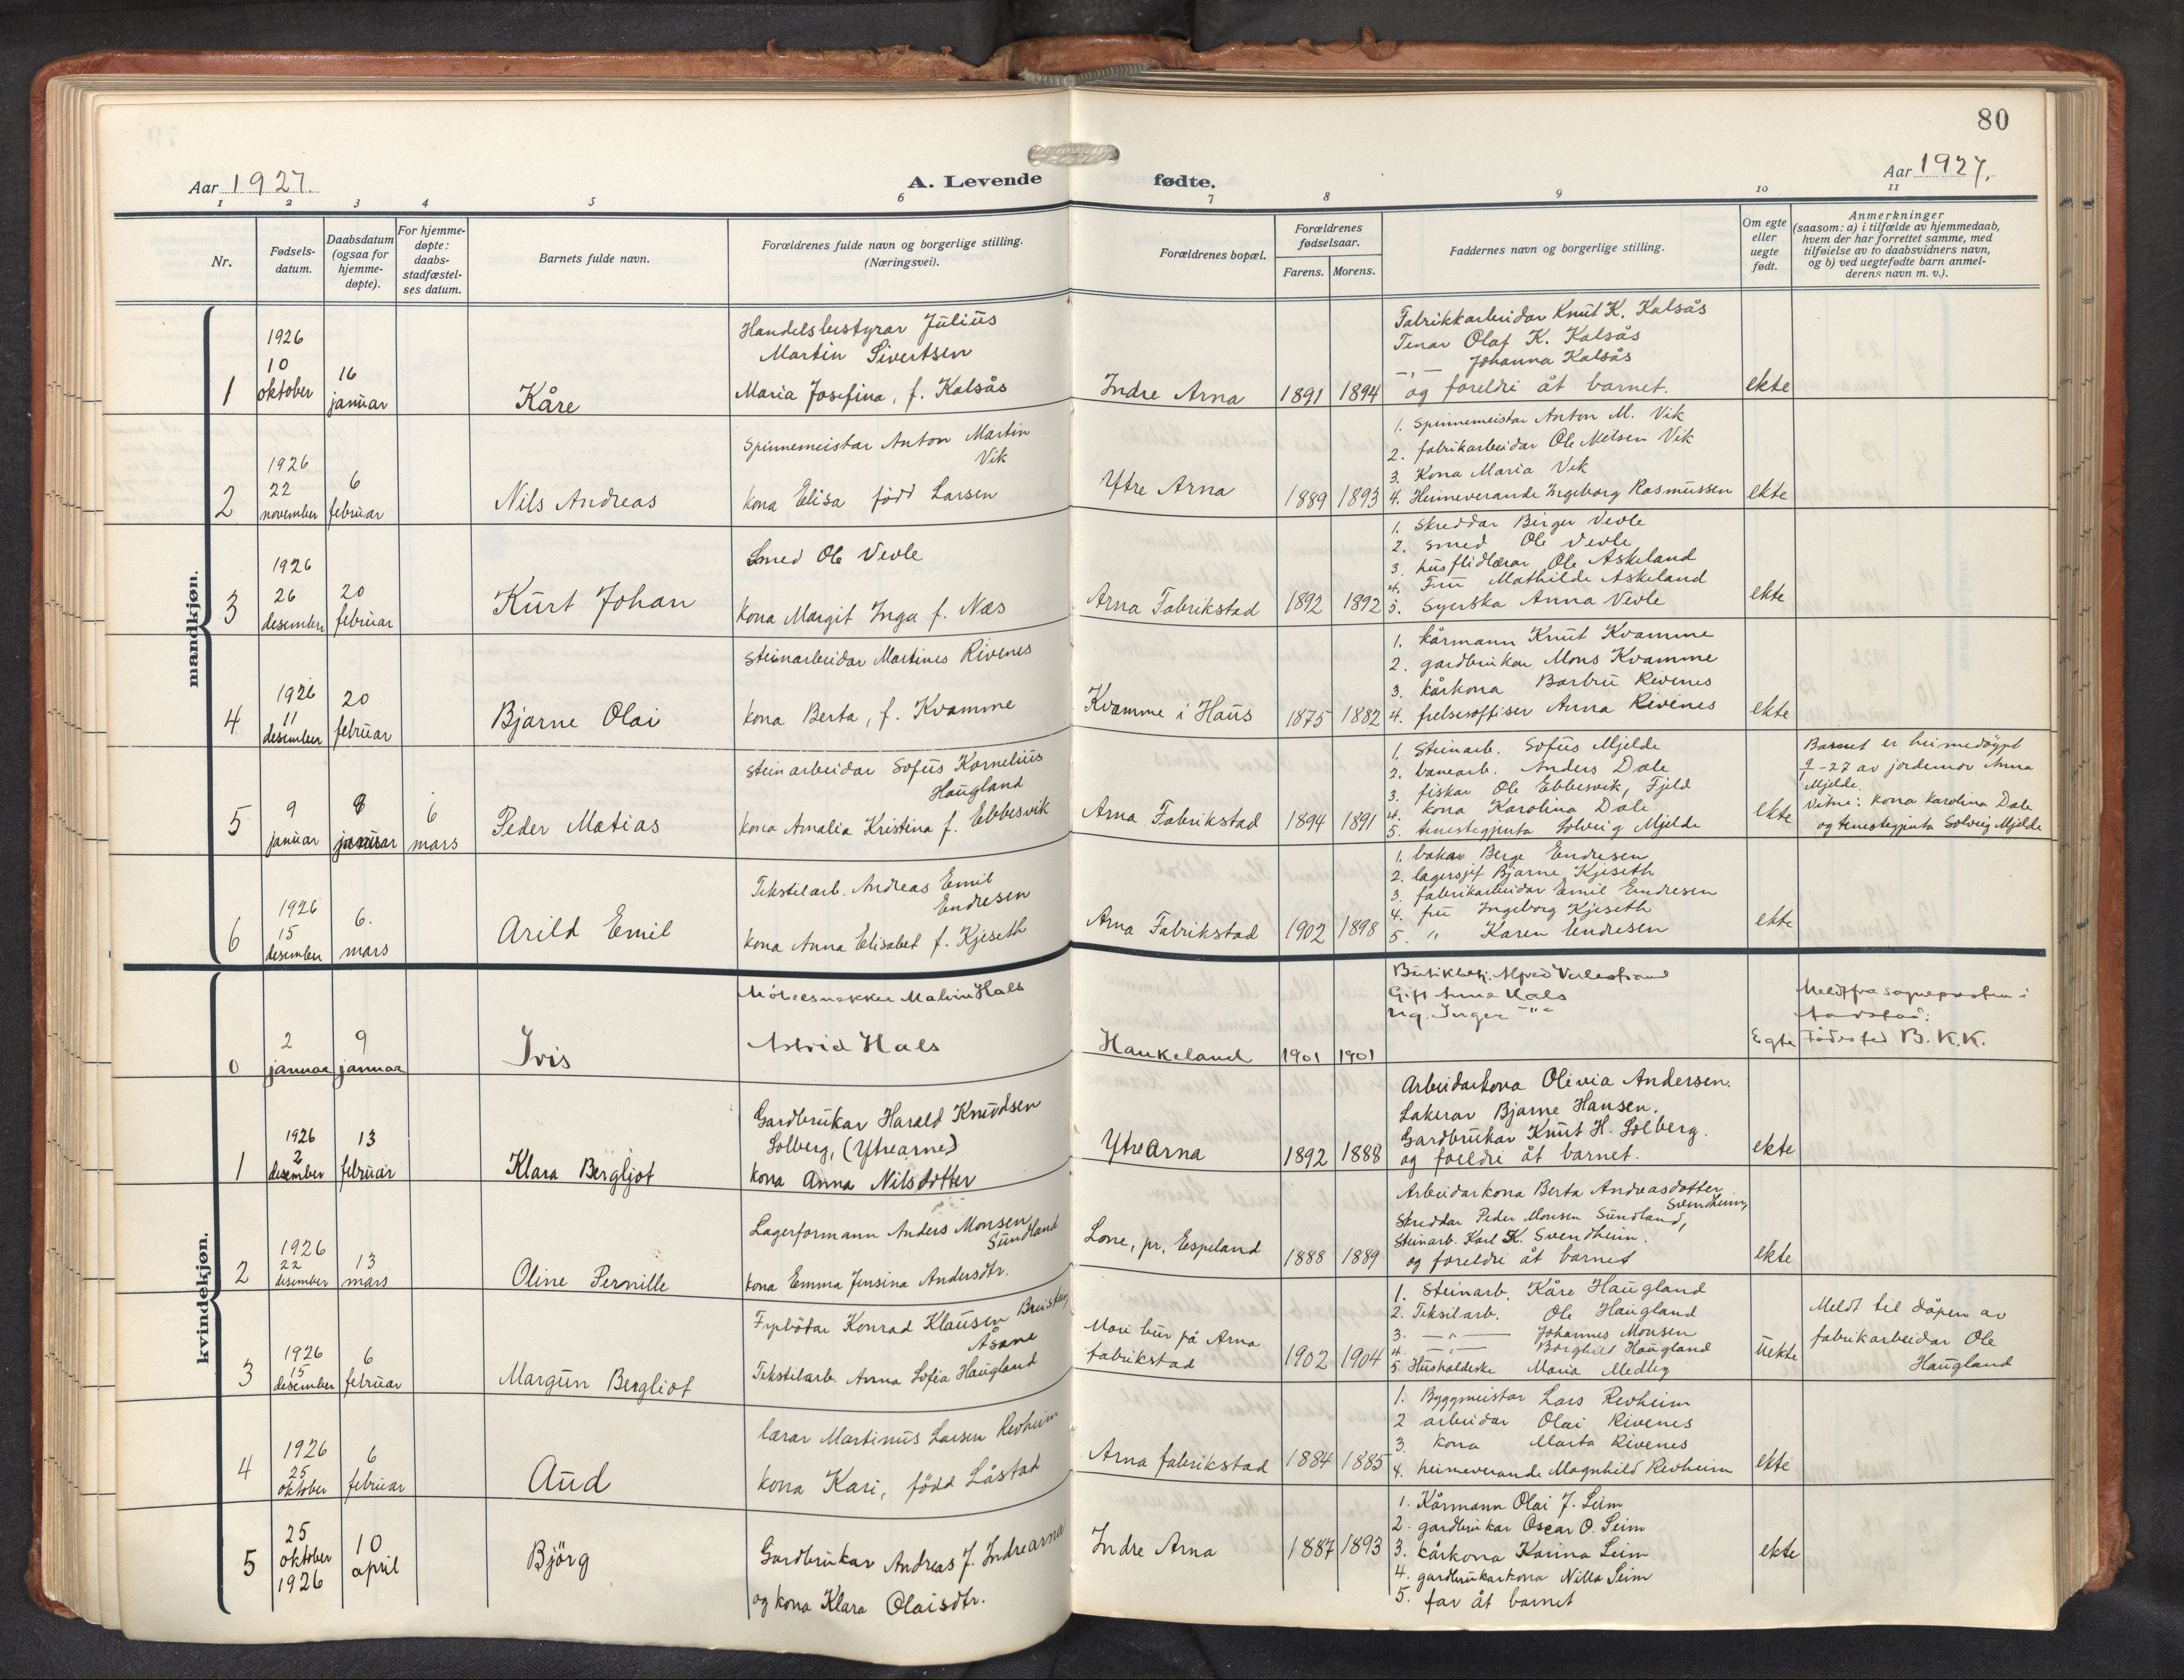 80
Aar 1927.
A. Levende fødte.
Aar 1927.
1 2 3 4 5 6 7 8 9 10 11
Nr.
Fødsels-
datum.
Daabsdatum
(ogsaa for
hjemme-
døpte).
For hjemme-
døpte:
daabs-
stadfæstel-
ses datum.
Barnets fulde navn.
Forældrenes fulde navn og borgerlige stilling.
(Næringsvei).
Forældrenes bopæl.
Forældrenes
fødselsaar.
Farens. Morens.
Faddernes navn og borgerlige stilling.
Om egte
eller
uegte
født.
Anmerkninger
(saasom: a) i tilfælde av hjemmedaab,
hvem der har forrettet samme, med
tilføielse av to daabsvidners navn,
og b) ved uegtefødte barn anmel-
derens navn m. v.).
mandkjøn.
1
1926
10
oktober
16
januar
Kåre
Handelsbestyrar Julius
Martin Sivertsen
Maria Josefina, f. Kalsås
Indre Arna
1891 1894
Fabrikkarbeidar Knut K. Kalsås
Tenar Olaf K. Kalsås
—"— Johanna Kalsås
og foreldri åt barnet.
ekte
2
1926
22
november
6
februar
Nils Andreas
Spinnemeistar Anton Martin
Vik
kona Elisa född Larsen
Ytre Arna
1889 1893
1. Spinnemeistar Anton M. Vik
2. fabrikarbeidar Ole Nilsen Vik
3. Kona Maria Vik
4. Heimeverande Ingeborg Rasmussen
ekte
3
1926
26
desember
20
februar
Kurt Johan
Smed Ole Vevle
kona Margit Inga f. Næs
Arna Fabrikstad
1892 1892
1. Skreddar Birger Vevle
2. Smed Ole Vevle
3. husflidlærar Ole Askeland
4. Fru Mathilde Askeland
5. Syerska Anna Vevle
ekte
4
1926
11
desember
20
februar
Bjarne Olai
Steinarbeidar Martines Rivenes
kona Berta, f. Kvamme
Kvamme i Haus
1875 1882
1. kårmann Knut Kvamme
2. gardbrukar Mons Kvamme
3. kårkona Barbru Rivenes
4. frelsesoffiser Anna Rivenes
ekte
5
9
januar
8
januar
6
mars
Peder Matias
Steinarbeidar Sofus Kornelius
Haugland
kona Amalia Kristina f. Ebbesvik
Arna Fabrikstad
1894 1891
1. Steinarb. Sofus Mjelde
2. banearb. Anders Dale
3. fiskar Ole Ebbesvik, Fjeld
4. kona Karolina Dale
5. tenestegjenta Solveig Mjelde
ekte
Barnet er heimedöypt
9/1-27 av jordmor Anna
Mjelde.
Vitne: kona Karolina Dale
og tenestegjenta Solveig Mjelde
6
1926
15
desember
6.
mars
Arild Emil
Tekstilarb. Andreas Emil
Endresen
kona Anna Elisabet f. Kjeseth
Arna Fabrikstad
1902 1898
1. bakar Berge Endresen
2. lagersjef Bjarne Kjeseth
3. fabrikarbeidar Emil Endresen
4. fru Ingeborg Kjeseth
5. " Karen Endresen
ekte
kvindekjøn.
0
2
januar
9
januar
Iris
Möbelsnekker Malvin Hals
Astrid Hals
Haukeland
1901 1901
Alfred
Gift Anna Hals
Ug. Inger —"—
Egte
Meldt fra sognepresten i
Födested B.K.K.
1
1926
2
desember
13
februar
Klara Bergljot
Gardbrukar Harald Knudsen
Solberg, (Ytrearne)
kona Anna Nilsdotter
Ytrearna
1892 1888
Arbeidarkona Olivia Andersen.
Lakerar Bjarne Hansen.
Gardbrukar Knut H. Solberg.
og foreldri åt barnet.
ekte
2
1926
22
desember
13
mars
Oline Pernille
Lagerformann Anders Monsen
Sundland
kona Emma Jensina Andersdtr.
Lone, pr. Espeland
1888 1889
Arbeidarkona Berta Andreasdotter
Svendheim,
Skreddar Peder Monsen Sundland,
Steinarb. Karl K. Svendheim.
og foreldri åt barnet
ekte
3
1926
15
desember
6
februar
Margun Bergliot
Fyrbötar Konrad Klausen
Åsane
Tekstilarb. Anna Sofia Haugland
Mori bur på Arna
fabrikstad
1902 1904
1. Steinarb. Kåre Haugland
2. Teksilarb. Ole Haugland
3. —"— Johannes Monsen
4. —"— Borghild Haugland
5. Husholderske Maria Medley
uekte
Meldt til dåpen av
fabrikarbeidar Ole
Haugland
4
1926
25
oktober
6
februar
Aud
lærar Martinus Larsen Revheim
kona Kari, född Låstad
Arna fabrikstad
1884 1885
1. Byggmeistar Lars Revheim
2 arbeidar Olai Rivenes
3. kona Marta Rivenes
4. heimeverande Magnhild Revheim
ekte
5
25
oktober
1926
10
april
Björg
Gardbrukar Andreas J. Indrearna
og kona Klara Olaisdtr.
Indre Arna
1887 1893
1. Kårmann Olai J. Seim
2. gardbrukar Oscar O. Seim
3. kårkona Karina Seim
4. gardbrukarkona Nilla Seim
5. far åt barnet
ekte